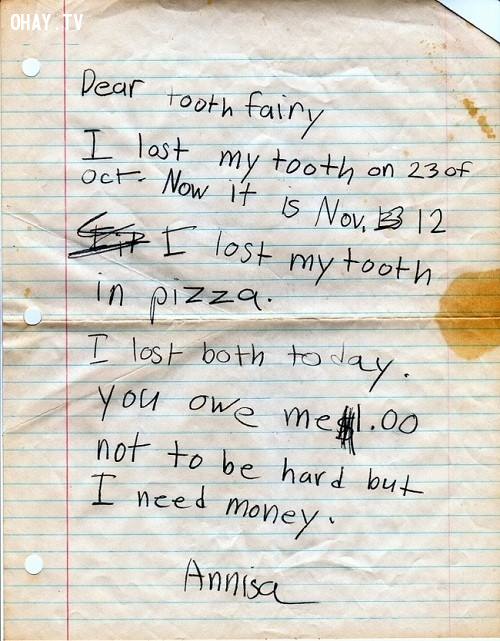 OHAY.TV
Dear tooth fairy
I lost my tooth on 23 of
oct. Now it is Nov. 12
I lost my tooth
in pizza.
I lost both today.
you owe me $1.00
not to be hard but
I need money.
Annisa